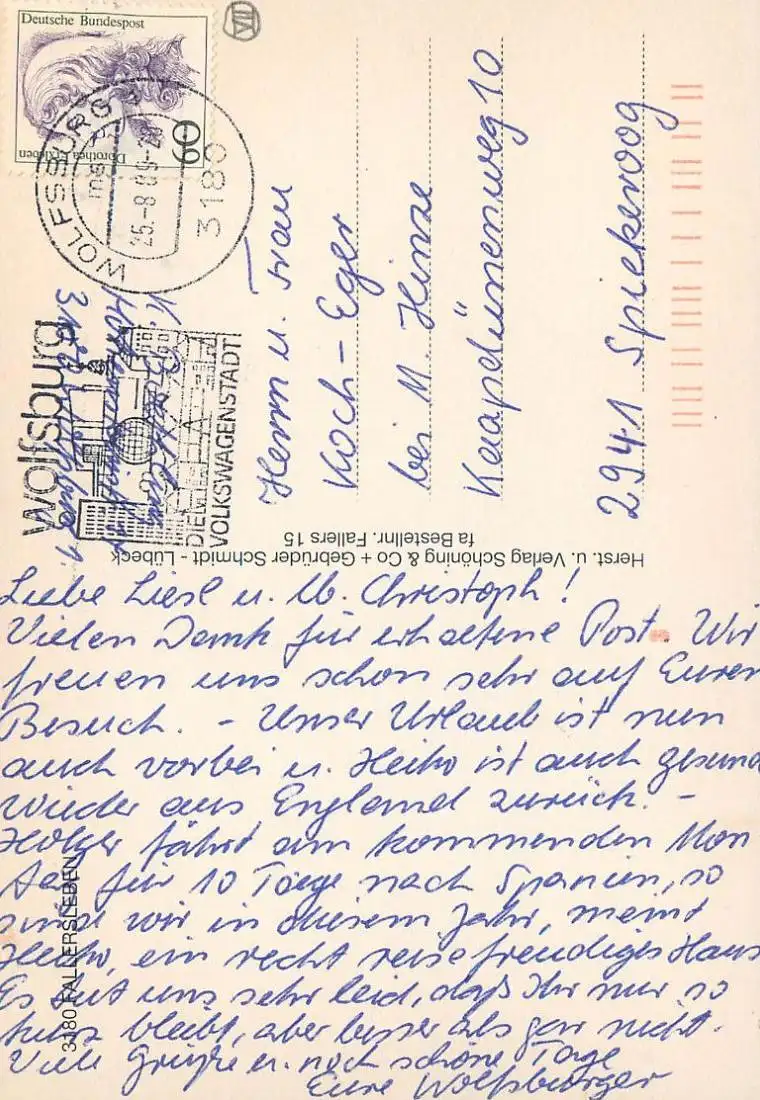 Deutsche Bundespost
Dorothea Erxleben
60
VII
WOLFSBURG 1
25.-8.89-20
3180
wolfsburg
DIE
VOLKSWAGENSTADT
Herrn u. Frau
Koch-Eger
bei M. Hinze
Kaapdünenweg 10
2941 Spiekeroog
Herst. u. Verlag Schöning & Co + Gebrüder Schmidt - Lübeck
fa Bestellnr. Fallers 15
3180 FALLERSLEBEN
Liebe Liesl u. lb. Christoph!
Vielen Dank für erhaltene Post. Wir
freuen uns schon sehr auf Euren
Besuch. - Unser Urlaub ist nun
auch vorbei u. Heiko ist auch gesund
wieder aus England zurück. -
Holger fährt am kommenden Mon
tag für 10 Tage nach Spanien, so
sind wir in diesem Jahr, meint
Heiko, ein recht reisefreudiges Haus
Es tut uns sehr leid, daß Ihr nur so
kurz bleibt, aber besser als gar nicht.
Viele Grüße u. noch schöne Tage
Eure Wolfsburger